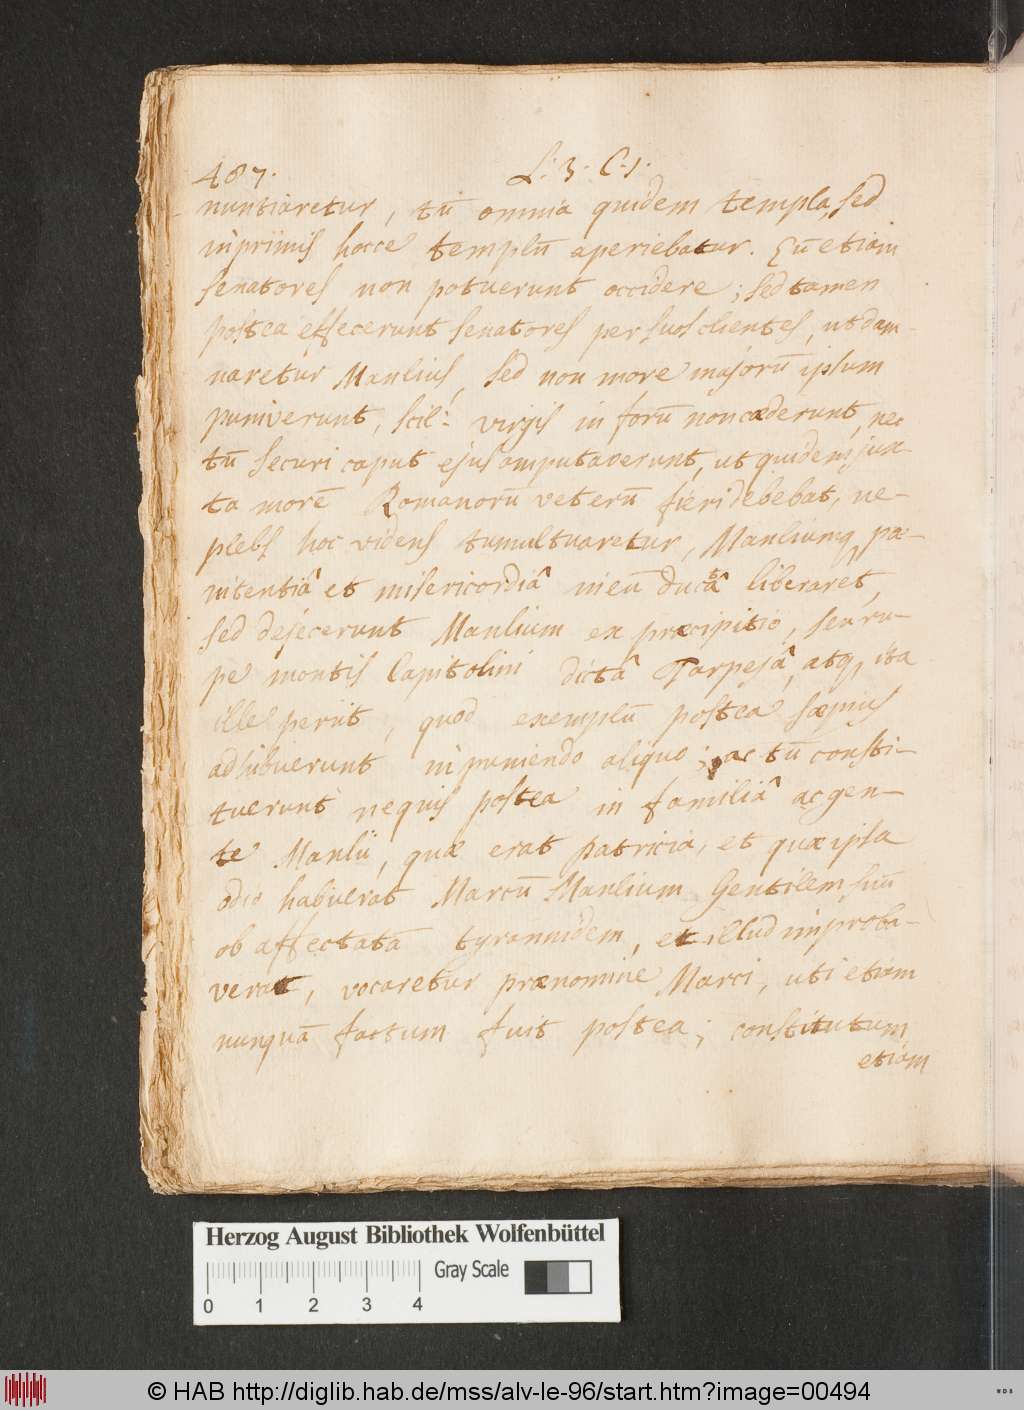 487. L. 3. C. 1.
nuntiaretur, tū omnia quidem templa, sed
inprimis hocce templū aperiebatur. Eū etiam
senatores non potuerunt occidere; sed tamen
postea effecerunt senatores per suos clientes, ut dam-
naretur Manlius, sed non more majorū ipsum
puniverunt, scil: virgis in forū non cæderunt, nec
tū securi caput ejus amputaverunt, ut quidem jux-
ta morē Romanorū veterū fieri debebat, ne-
plebs hoc videns tumultuaretur, Manliumq pæ-
nitentiâ et misericordiâ ductâ liberaret,
sed dejecerunt Manlium ex præcipitio, seu ru-
pe montis Capitolini dictâ Tarpejâ, atq ita
ille periit, quod exemplū postea sæpius
adhibuerunt in puniendo aliquo; ac tū consti-
tuerunt nequis postea in familiâ ac gen-
te Manlii, quæ erat patricia, et quæ ipsa
odio habuerat Marcū Manlium Gentilem suū
ob affectatā tyrannidem, et illud improba-
verat, vocaretur prænomine Marci, uti etiam
nunquā factum fuit postea; constitutum
etiam
Herzog August Bibliothek Wolfenbüttel
Gray Scale
0 1 2 3 4
© HAB http://diglib.hab.de/mss/alv-le-96/start.htm?image=00494